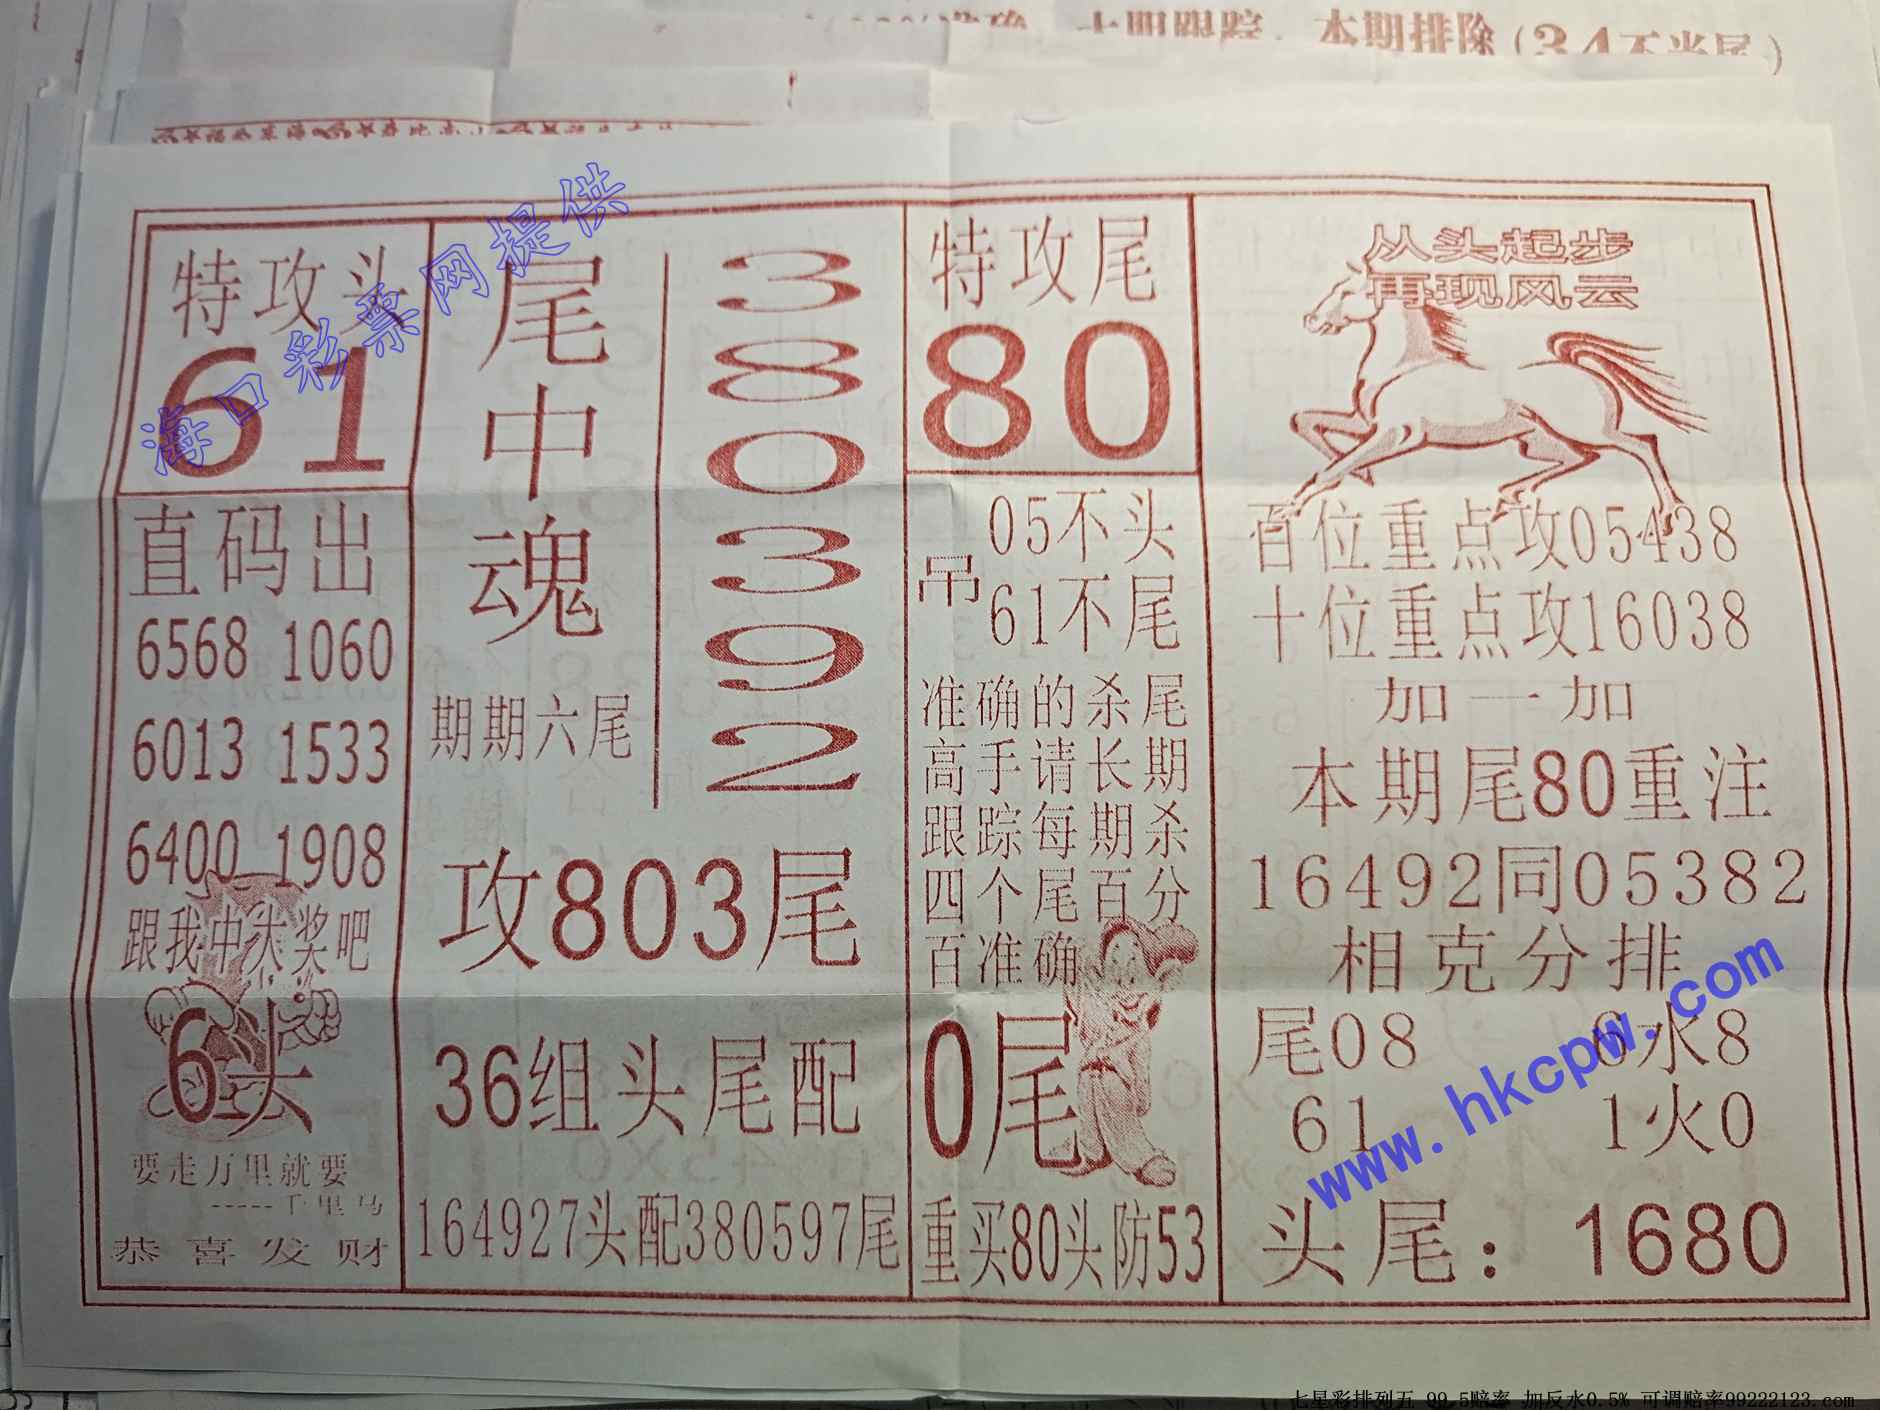 本期排除(34不当尾)
海口彩票网提供
特攻头
61
直码出
6568 1060
6013 1533
6400 1908
跟我中大奖吧
6头
要走万里就要
-----千里马
恭喜发财
尾中魂
期期六尾
3803992
攻803尾
36组头尾配
164927头配380597尾
特攻尾
80
吊
05不头
61不尾
准确的杀尾
高手请长期
跟踪每期杀
四个尾百分
百准确
0尾
重买80头防53
从头起步
再现风云
百位重点攻05438
十位重点攻16038
加一加
本期尾80重注
16492同05382
相克分排
尾08 6水8
61 1火0
头尾：1680
www.hkcpw.com
七星彩排列五 99.5赔率 加反水0.5% 可调赔率99222123.com